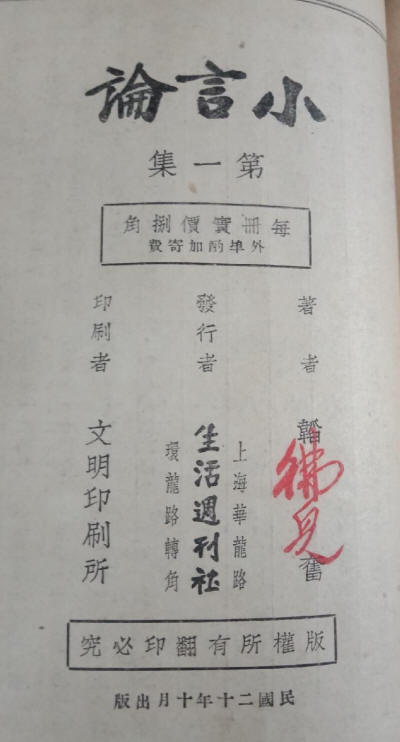 小言論
第一集
每冊實價捌角
外埠酌加寄費
著者 韜奮
上海華龍路
發行者 生活週刊社
環龍路轉角
印刷者 文明印刷所
版權所有翻印必究
民國二十年十月出版